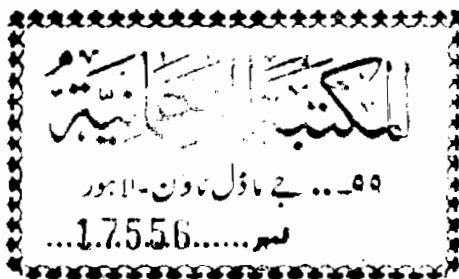 المكتبة الرحمانية
۹۹... جے ماڈل ٹاؤن ۔ لاہور
نمبر ......1.7.5.5.6...